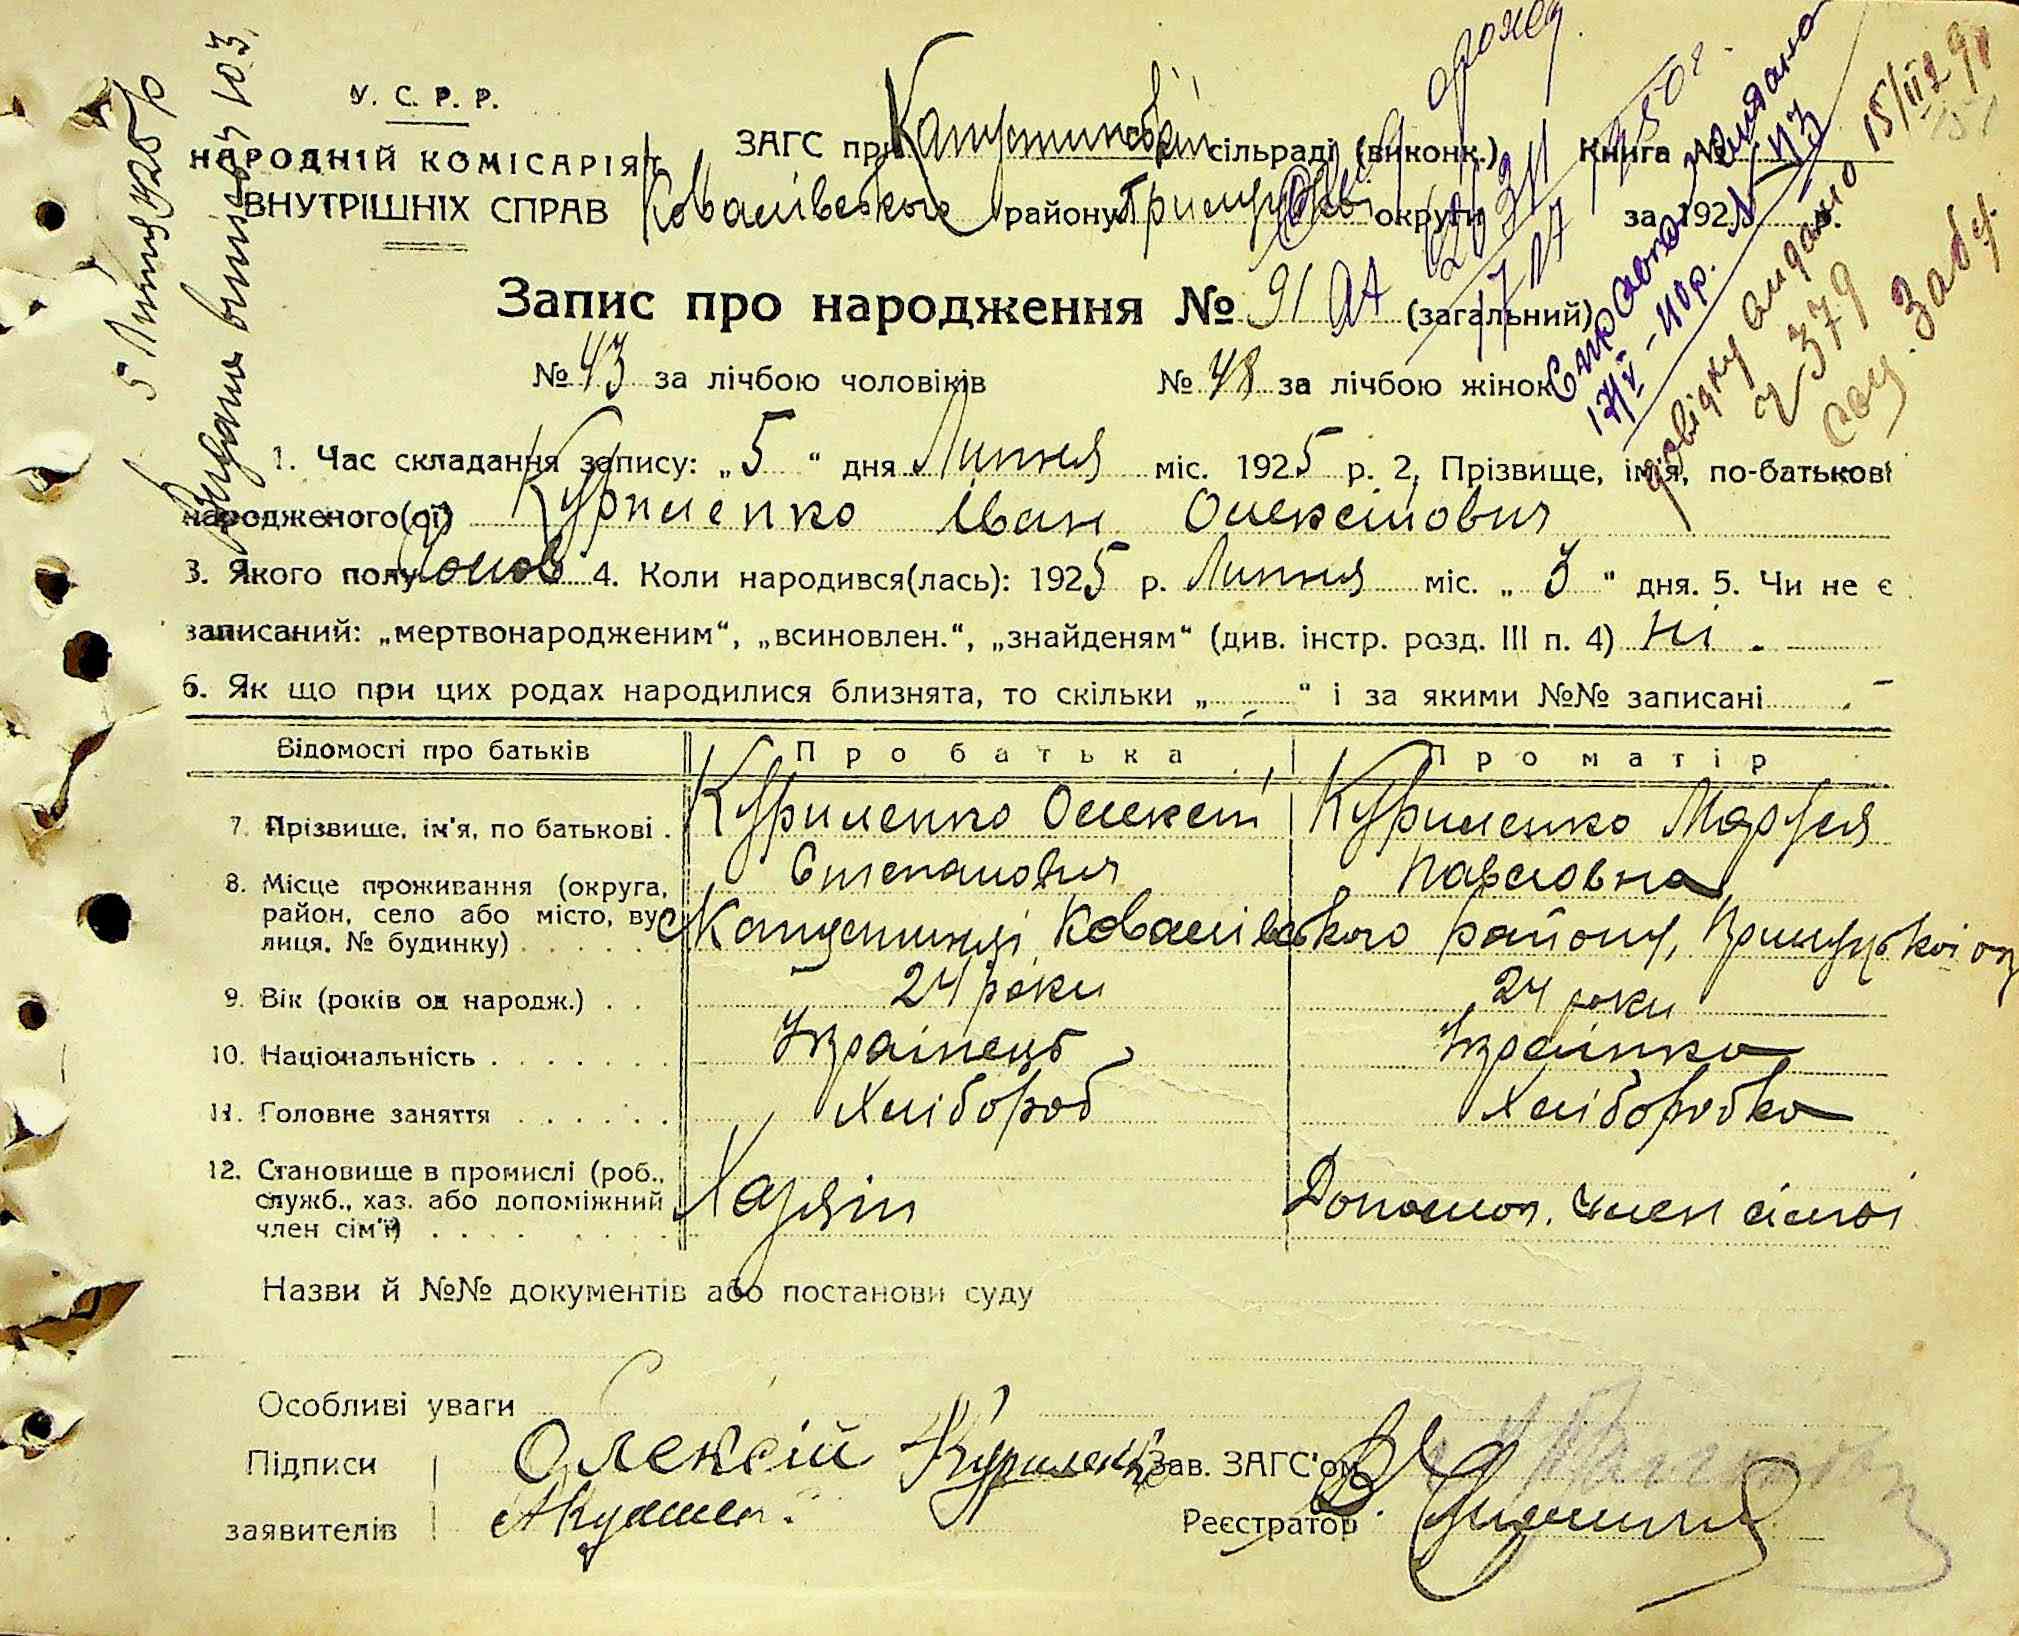 У. С. Р. Р.
НАРОДНІЙ КОМІСАРІЯТ
ВНУТРІШНІХ СПРАВ
ЗАГС при Капустинській сільраді (виконк.) Книга №
Ковалівського району Прилуцької округи за 1925 р.
5 Липня 1925 р
Видано виписку 103.
Запис про народження № 91 (загальний)
№ 43 за лічбою чоловіків № 48 за лічбою жінок
Справка выдана
17/V - 40р. № 113
довідку видано 15/III
379
1. Час складання запису: „5" дня Липня міс. 1925 р. 2, Прізвище, ім'я, по-батькові
народженого(ої) Куриленко Іван Олексійович
3. Якого полу Чолов 4. Коли народився(лась): 1925 р. Липня міс. „3" дня. 5. Чи не є
записаний: „мертвонародженим", „всиновлен.", „знайденям" (див. інстр. розд. III п. 4) Ні.
6. Як що при цих родах народилися близнята, то скільки „-" і за якими №№ записані -
Відомості про батьків Про батька Про матір
7. Прізвище, ім'я, по батькові . Куриленко Олексій Степанович Куриленко Маруся Павловна
8. Місце проживання (округа,
район, село або місто, ву-
лиця, № будинку) . . . . с Капустинці Ковалівського району, Прилуцької ок
9. Вік (років од народж.) . . 24 роки 24 роки
10. Національність . . . . . . . Українець Українка
11. Головне заняття . . . . . . Хлібороб Хлібобробка
12. Становище в промислі (роб.,
служб., хаз. або допоміжний
член сім'ї) . . . . . . . . Хазяїн Допомоч. член сімї
Назви й №№ документів або постанови суду
Особливі уваги
Підписи Олексій Куриленко Зав. ЗАГС'ом
заявителів Акушер. Реєстратор